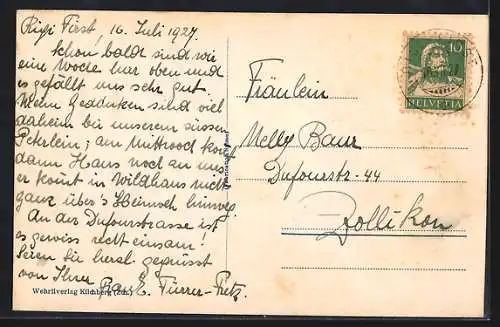 Rigi First, 16. Juli 1927
Schon bald sind wir
eine Woche hier oben und
es gefällt uns sehr gut
Meine Gedanken sind viel
daheim bei unserem süssen
Peterlein; am Mittwoch kom
dann Hans noch an uns
er kommt in Wildhaus nicht
ganz über's Heimweh hinweg.
An der Dufourstrasse ist
es gewiss recht einsam!
Seien Sie herzl. gegrüsst
von Ihrer
Furrer-
Wehrliverlag Kilchberg (Zch.)
10
HELVETIA
Fräulein
Nelly Baur
Dufourstr. 44
Zollikon